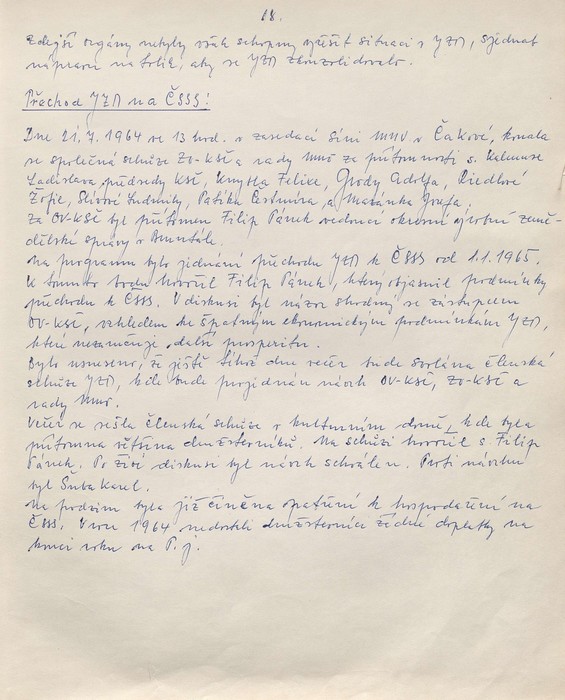 18.
zdejší orgány nebyly však schopny vyřešit situaci v JZD, sjednat
nápravu natolik, aby se JZD zkonzolidovalo.
Přechod JZD na ČSSS!
Dne 21.7.1964 ve 13 hod. v zasedací síni MNV v Čakové, konala
se společná schůze ZO-KSČ a rady MNV za přítomnosti s.
Ladislava, předsedy KSČ, Felixe, Grody Adolfa, Riedlové
Žofie, Slívové Ludmily, Patika Čestmíra, a Maňánka Josefa,
Za OV-KSČ byl přítomen Filip Pánek vedoucí okresní výrobní země-
dělské správy v Bruntále.
Na programu bylo jednání přechodu JZD k ČSSS od 1.1.1965.
K tomuto bodu hovořil Filip Pánek, který objasnil podmínky
přechodu k ČSSS. V diskusi byl názor shodný se zástupcem
OV-KSČ, vzhledem ke špatným ekonomickým podmínkám JZD,
které nezaručují další prosperitu.
Bylo usneseno, že ještě téhož dne večer bude svolána členská
schůze JZD, kde bude projednán návrh OV-KSČ, ZO-KSČ a
rady MNV.
Večer se sešla členská schůze v kulturním domě, kde byla
přítomna většina družstevníků. Na schůzi hovořil s. Filip
Pánek. Po živé diskusi byl návrh schválen. Proti návrhu
byl Šuba Karel.
Na podzim byla již činěna opatření k hospodaření na
ČSSS. V roce 1964 nedostali družstevníci žádné doplatky na
konci roku na P.j.